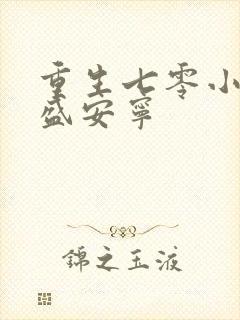 重生七零小
盛安宁
錦之玉液